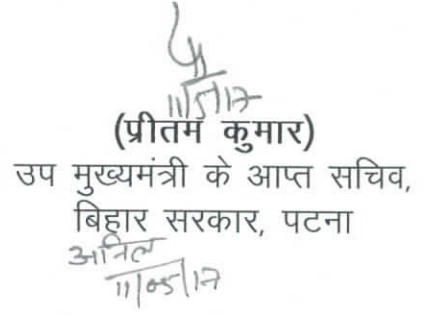 11/5/17
(प्रीतम कुमार)
उप मुख्यमंत्री के आप्त सचिव,
बिहार सरकार, पटना
अनिल
11/05/17